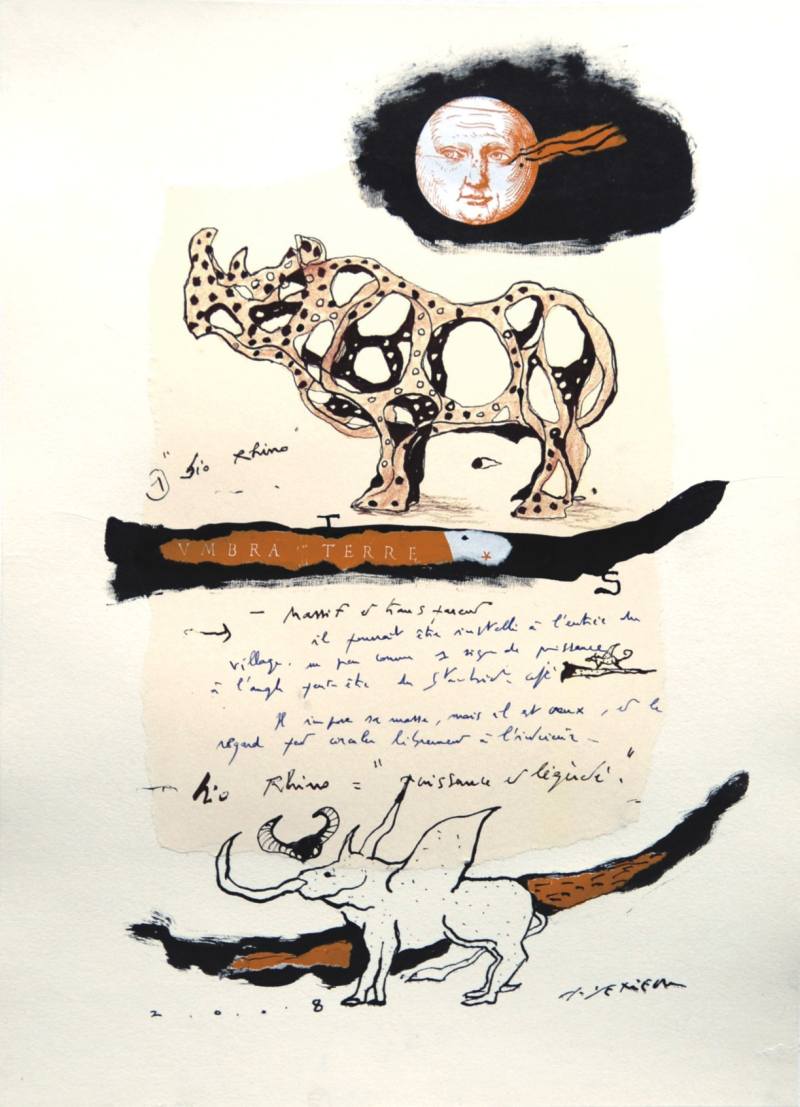 ① "bio Rhino"
T
VMBRA TERRE
S
— Massif et transparent
il pourrait être installé à l'entrée du
village. un peu comme signe de puissance
à l'angle peut-être du café
Il impose sa masse, mais il est creux, et le
regard peut circuler librement à l'intérieur —
— bio Rhino = "puissance et légèreté."
2.0.0.8